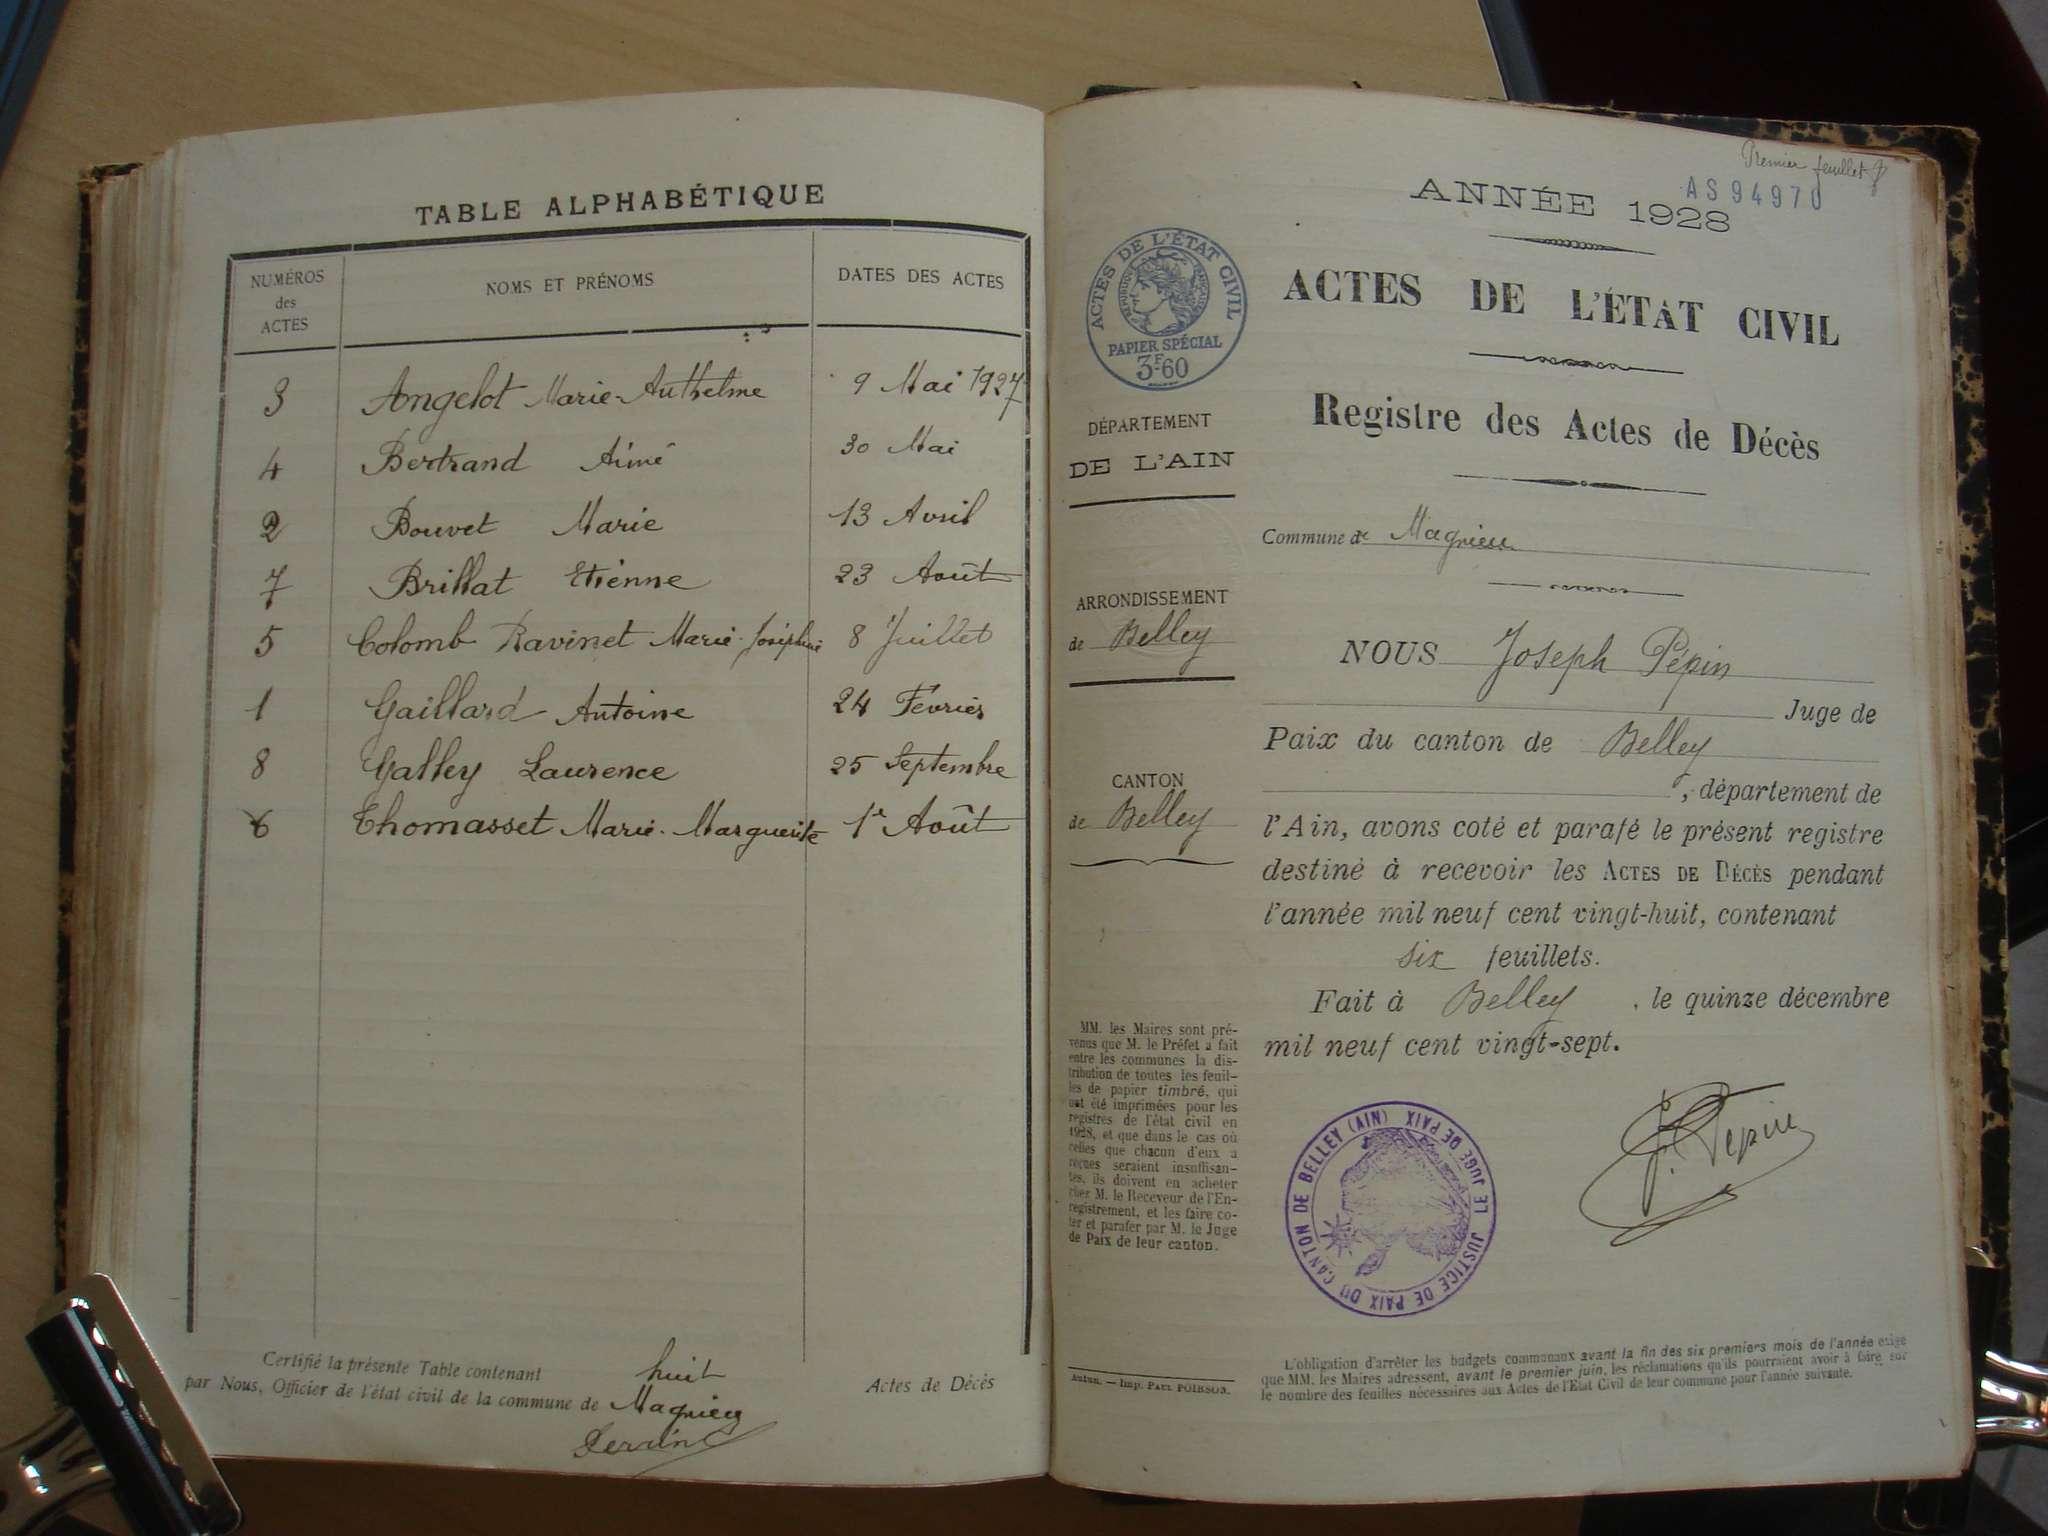 TABLE ALPHABÉTIQUE
NUMÉROS des ACTES NOMS ET PRÉNOMS DATES DES ACTES
3 Angelot Marie-Anthelme 9 Mai 1927
4 Bertrand Aimé 30 Mai
2 Bouvet Marie 13 Avril
7 Brillat Etienne 23 Août
5 Colomb Ravinet Marie-Joséphine 8 Juillet
1 Gaillard Antoine 24 Février
8 Galley Laurence 25 Septembre
6 Thomasset Marie-Marguerite 1er Août
Certifié la présente Table contenant huit Actes de Décès
par Nous, Officier de l'état civil de la commune de Magnieu
Perrin
Premier feuillet
AS94970
ANNÉE 1928
ACTES DE L'ÉTAT CIVIL
RÉPUBLIQUE FRANÇAISE
PAPIER SPÉCIAL
3F60
ACTES DE L'ÉTAT CIVIL
Registre des Actes de Décès
DÉPARTEMENT
DE L'AIN
Commune de Magnieu
ARRONDISSEMENT
de Belley
CANTON
de Belley
NOUS Joseph Pépin
Juge de
Paix du canton de Belley
, département de
l'Ain, avons coté et parafé le présent registre
destiné à recevoir les ACTES DE DÉCÈS pendant
l'année mil neuf cent vingt-huit, contenant
six feuillets.
Fait à Belley, le quinze décembre
mil neuf cent vingt-sept.
MM. les Maires sont pré-
venus que M. le Préfet a fait
entre les communes la dis-
tribution de toutes les feuil-
les de papier timbré, qui
ont été imprimées pour les
registres de l'état civil en
1928, et que dans le cas où
celles que chacun d'eux a
reçues seraient insuffisan-
tes, ils doivent en acheter
chez M. le Receveur de l'En-
registrement, et les faire co-
ter et parafer par M. le Juge
de Paix de leur canton.
JUSTICE DE PAIX DU CANTON DE BELLEY (AIN)
LE JUGE DE PAIX
J. Pépin
Autun. — Imp. PAUL POIRSON.
L'obligation d'arrêter les budgets communaux avant la fin des six premiers mois de l'année exige
que MM. les Maires adressent, avant le premier juin, les réclamations qu'ils pourraient avoir à faire sur
le nombre des feuilles nécessaires aux Actes de l'Etat Civil de leur commune pour l'année suivante.